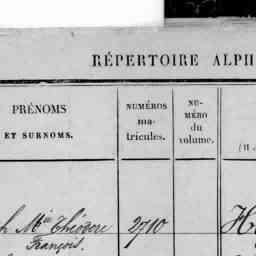 RÉPERTOIRE ALPH
PRÉNOMS
ET SURNOMS.
NUMÉROS
ma-
tricules.
NU-
MÉRO
du
volume.
h Mie Théodore
François.
2710
H